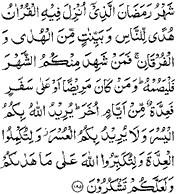 شَهْرُ رَمَضَانَ الَّذِيٓ أُنْزِلَ فِيهِ الْقُرْاٰنُ
هُدًى لِّلنَّاسِ وَبَيِّنٰتٍ مِّنَ الْهُدٰى وَ
الْفُرْقَانِ ۚ فَمَنْ شَهِدَ مِنْكُمُ الشَّهْرَ
فَلْيَصُمْهُ ۖ وَمَنْ كَانَ مَرِيضًا أَوْ عَلٰى سَفَرٍ
فَعِدَّةٌ مِّنْ أَيَّامٍ أُخَرَ ۗ يُرِيدُ اللّٰهُ بِكُمُ
الْيُسْرَ وَلَا يُرِيدُ بِكُمُ الْعُسْرَ ۖ وَلِتُكْمِلُوا
الْعِدَّةَ وَلِتُكَبِّرُوا اللّٰهَ عَلٰى مَا هَدٰىكُمْ
وَلَعَلَّكُمْ تَشْكُرُونَ ١٨٥